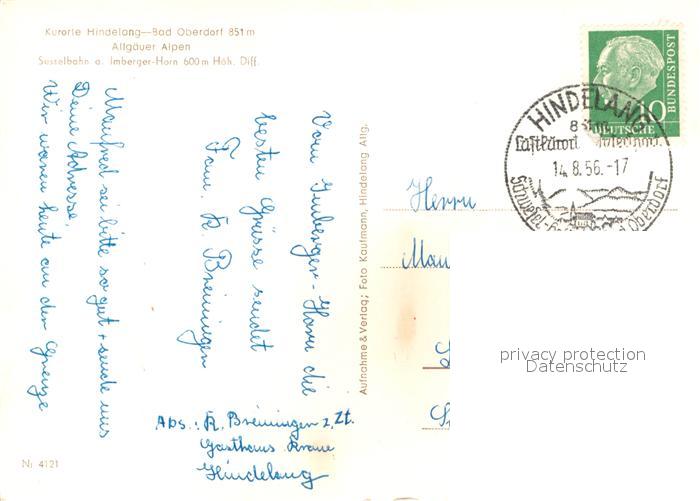 Kurorte Hindelang—Bad Oberdorf 851 m
Allgäuer Alpen
Sesselbahn a. Imberger-Horn 600 m Höh. Diff.
Vom Imberger-Horn die
besten Grüsse sendet
Fam. R. Breiningen
Manfred sei bitte so gut + sende uns
Deine Adresse.
Wir waren heute an der Grenze
Abs.: R. Breiningen z. Zt.
Gasthaus Krone
Hindelang
Nr. 4121
Aufnahme & Verlag; Foto Kaufmann, Hindelang Allg.
DEUTSCHE
BUNDESPOST
HINDELANG
Luftkurort
14.8.56.-17
Oberdorf
Herrn
privacy protection
Datenschutz